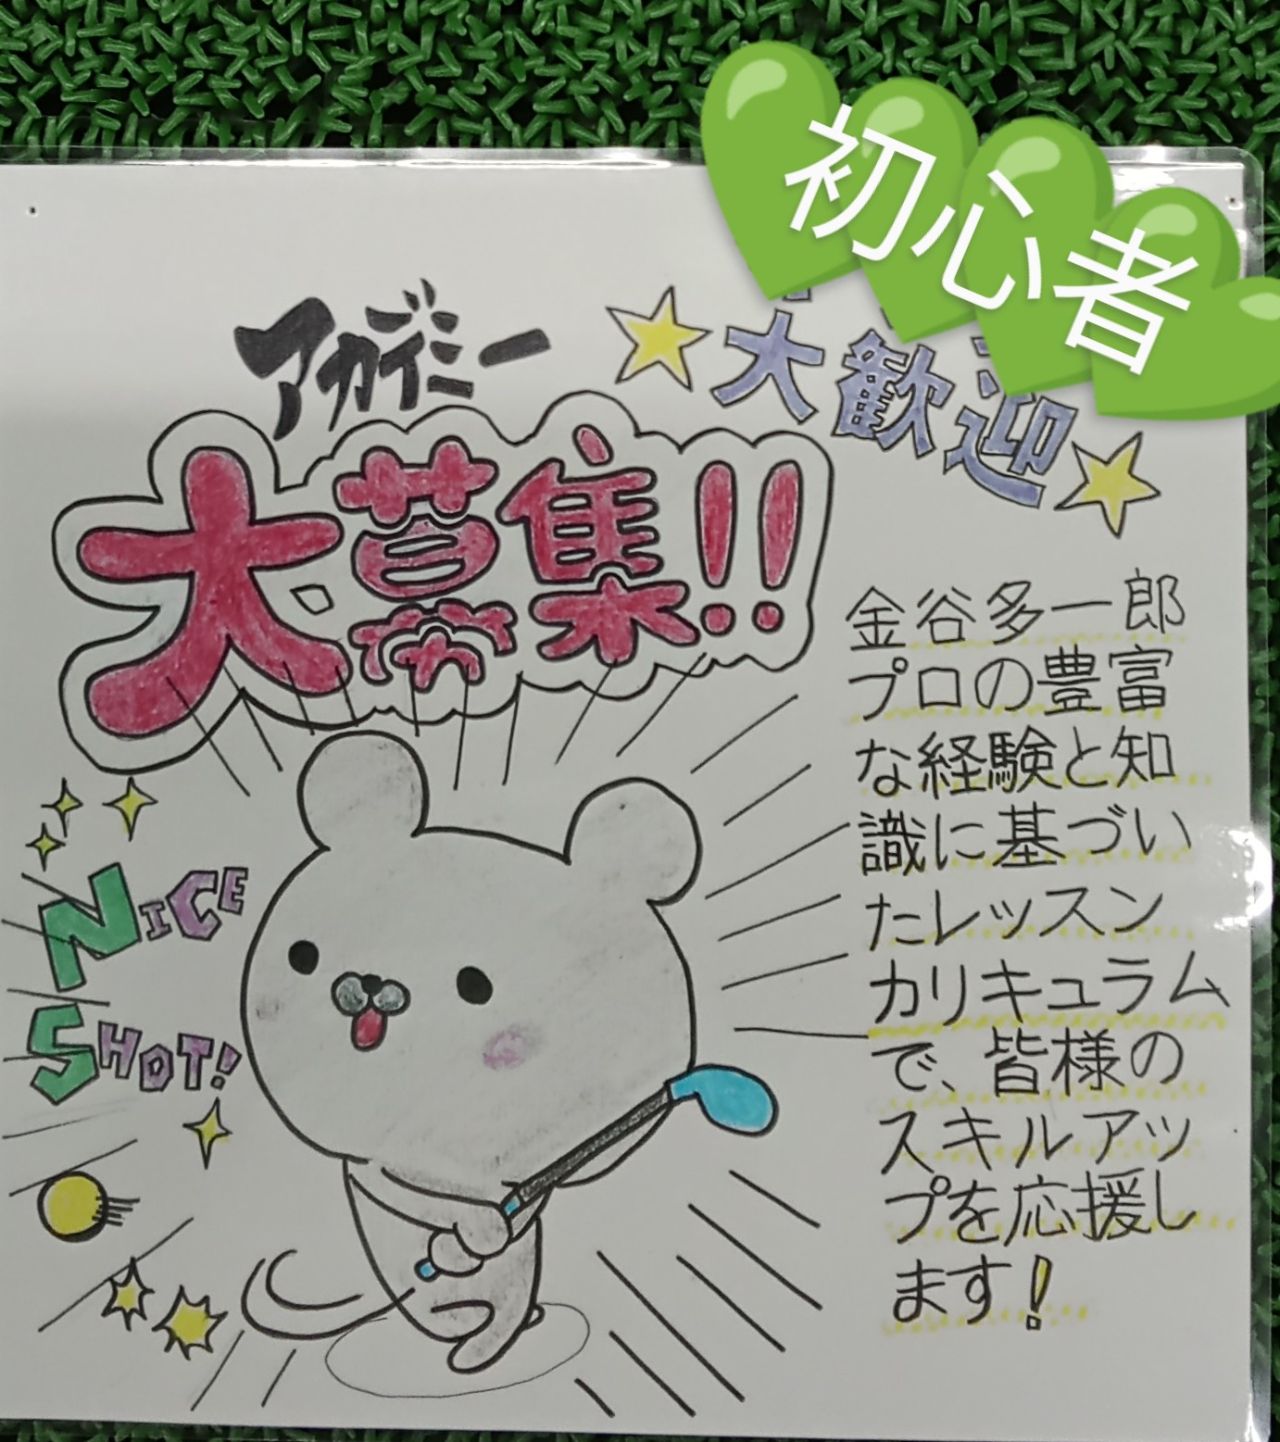 初心者
大歓迎
アカデミー
大募集!!
金谷多一郎
プロの豊富
な経験と知
識に基づい
たレッスン
カリキュラム
で、皆様の
スキルアッ
プを応援し
ます!
NICE
SHOT!